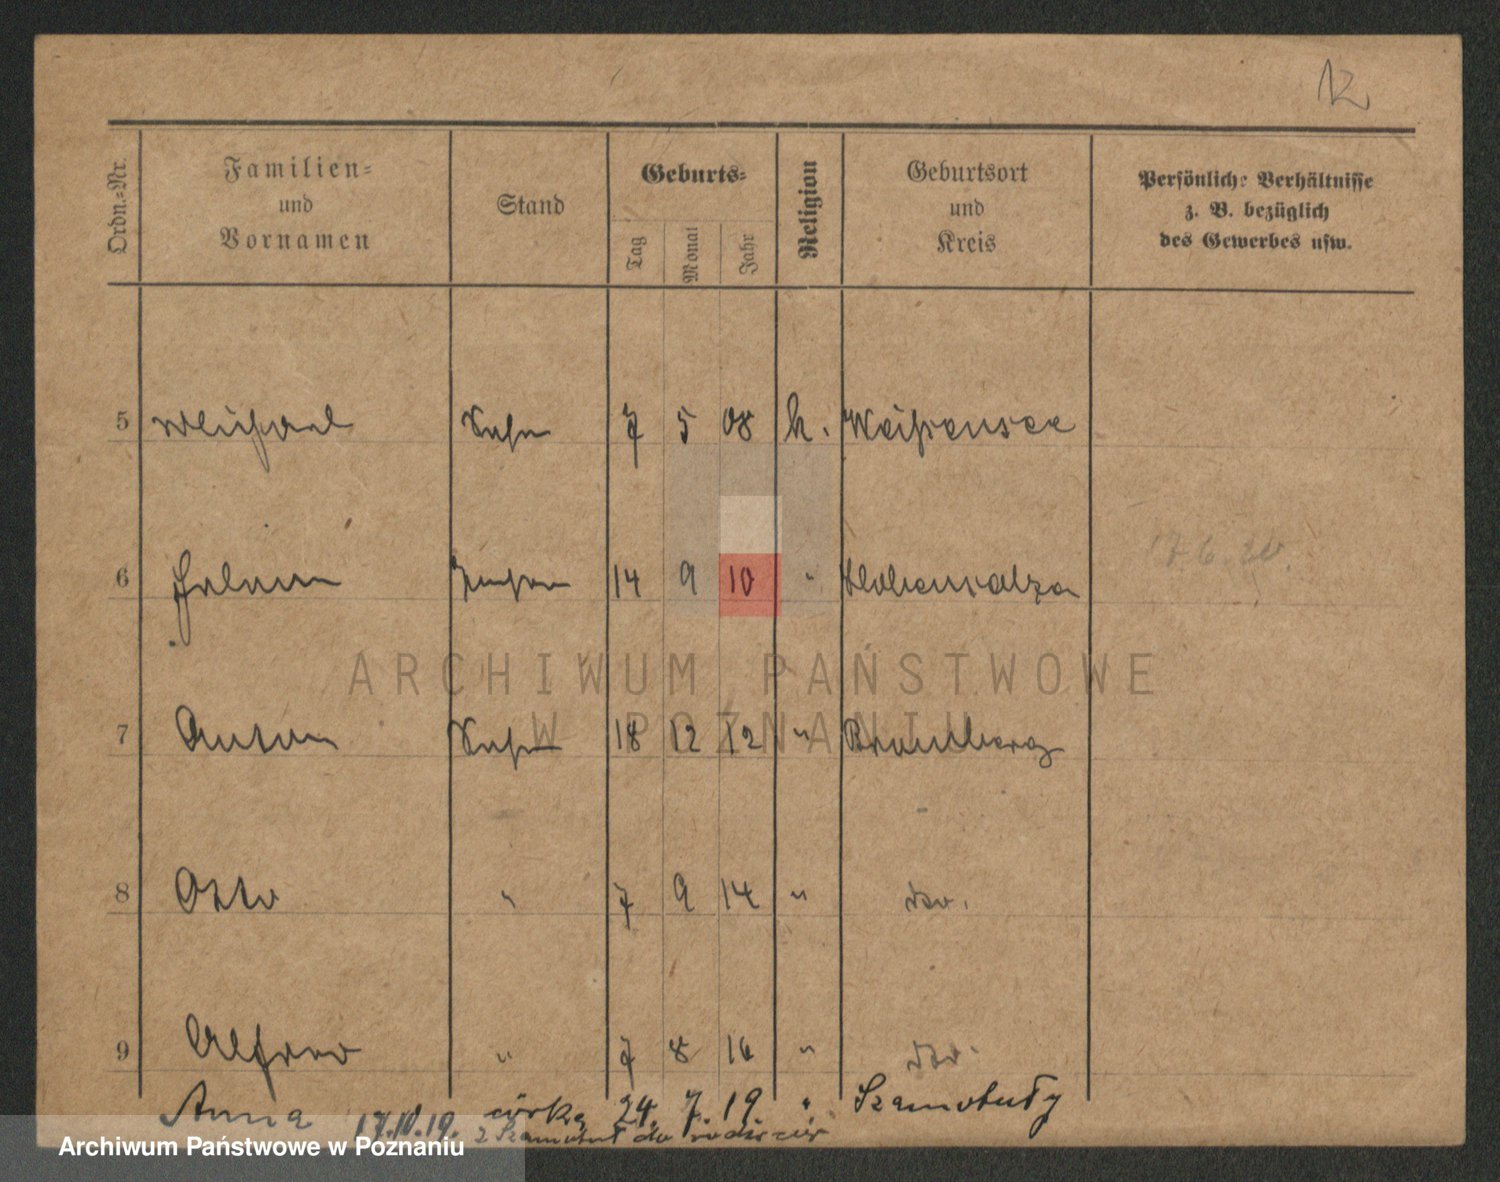 12
Ordn.-Nr.
Familien-
und
Vornamen
Stand
Geburts-
Tag
Monat
Jahr
Religion
Geburtsort
und
Kreis
Persönliche Verhältnisse
z. B. bezüglich
des Gewerbes usw.
5 Michael Sohn 7 5 08 k. Weißensee
6 Helene 14 9 10 " Hohensalza
17.6.20.
ARCHIWUM PAŃSTWOWE
W POZNANIU
7 Anton Sohn 18 12 12 " Bromberg
8 Otto " 7 9 14 " do.
9 Alfred " 7 8 16 " do.
Anna córka 24. 7. 19. " Szamotuły
17.10.19. z Szamotuł do rodziców
Archiwum Państwowe w Poznaniu